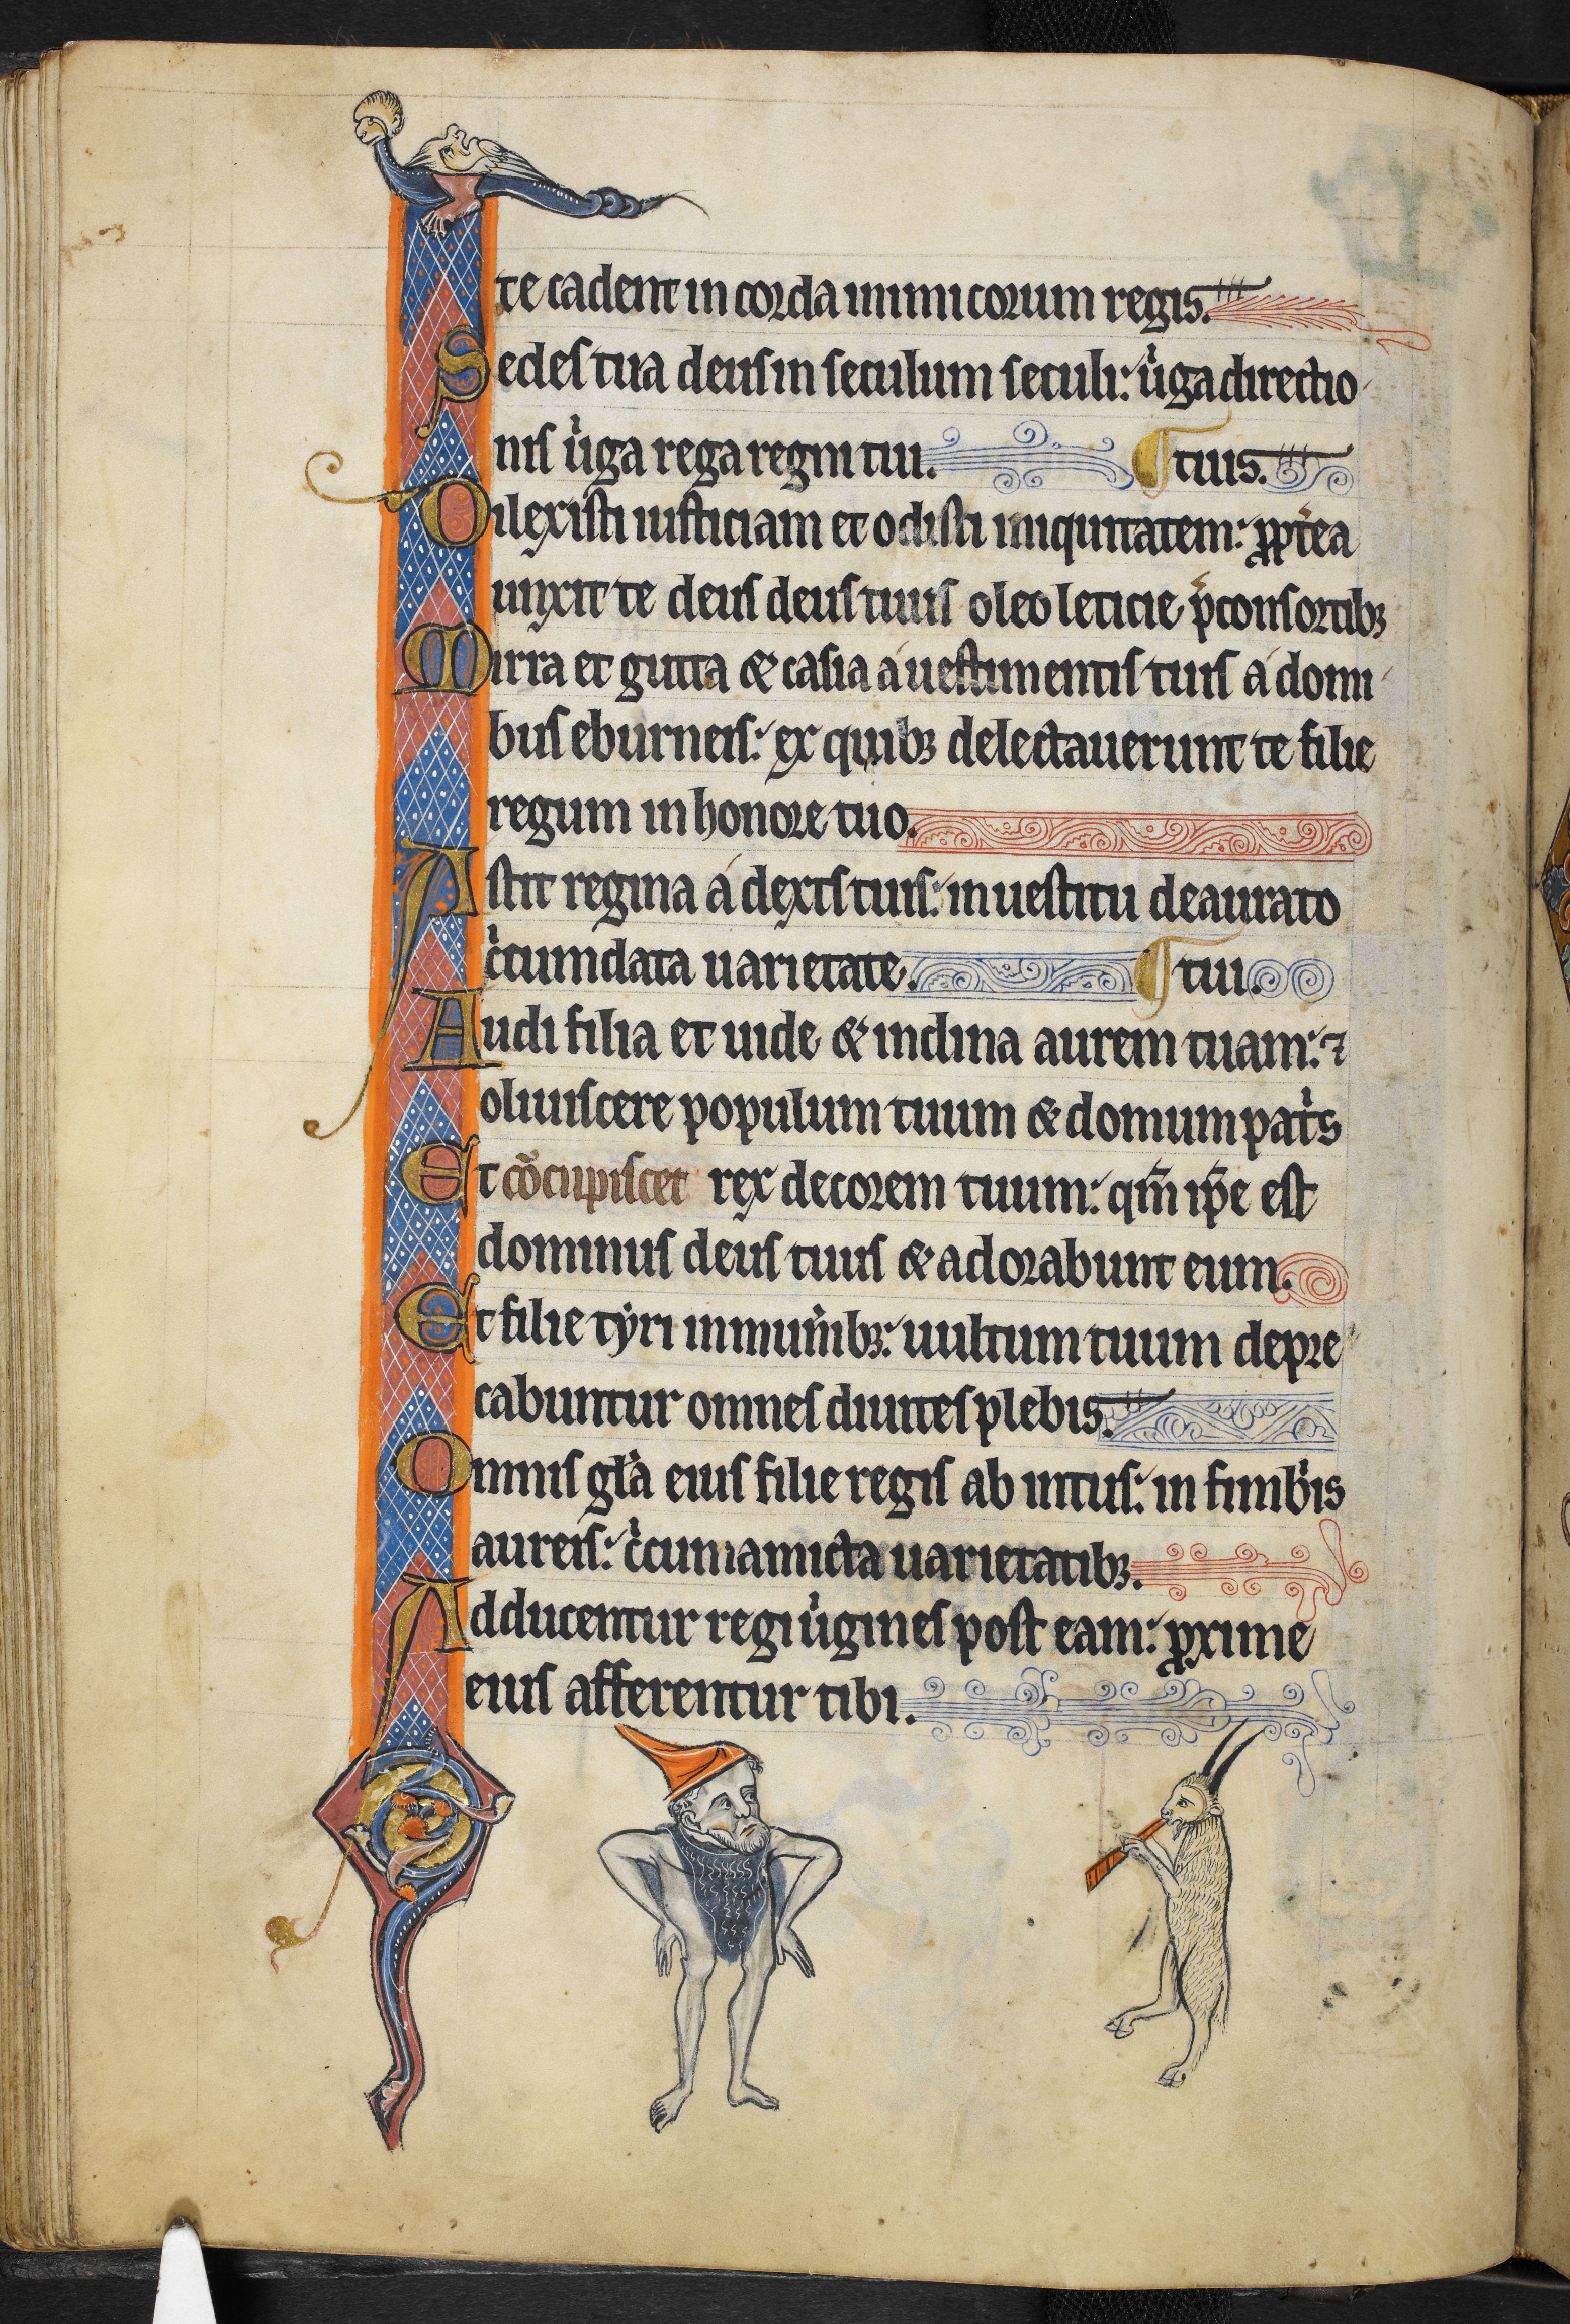 te cadent in corda inimicorum regis.
Sedes tua deus in seculum seculi: u͛ga directio
nis u͛ga rega regni tui. ¶ tuus.
Dilexisti iusticiam et odisti iniquitatem: ꝓpt͛ea
unxit te deus deus tuus oleo leticie p̄ consortibꝫ
Mirra et gutta & casia a uestimentis tuis a domi
bus eburneis: ex quibꝫ delectauerunt te filie
regum in honore tuo.
Astit regina a dext͛s tuis: in uestitu deaurato
cͥcumdata uarietate. ¶ tui.
Audi filia et uide & inclina aurem tuam: ⁊
obliuiscere populum tuum & domum patͥs
Et co̅cupiscet rex decorem tuum: qm̅ ip̅e est
dominus deus tuus & adorabunt eum.
Et filie tẏri in mun͛ibꝫ: uultum tuum depre
cabuntur omnes diuites plebis.
Omnis gl̅a eius filie regis ab intus: in fimbͥis
aureis: cͥcumamicta uarietatibꝫ.
Adducentur regi uͥgines post eam: ꝓxime
eius afferentur tibi.